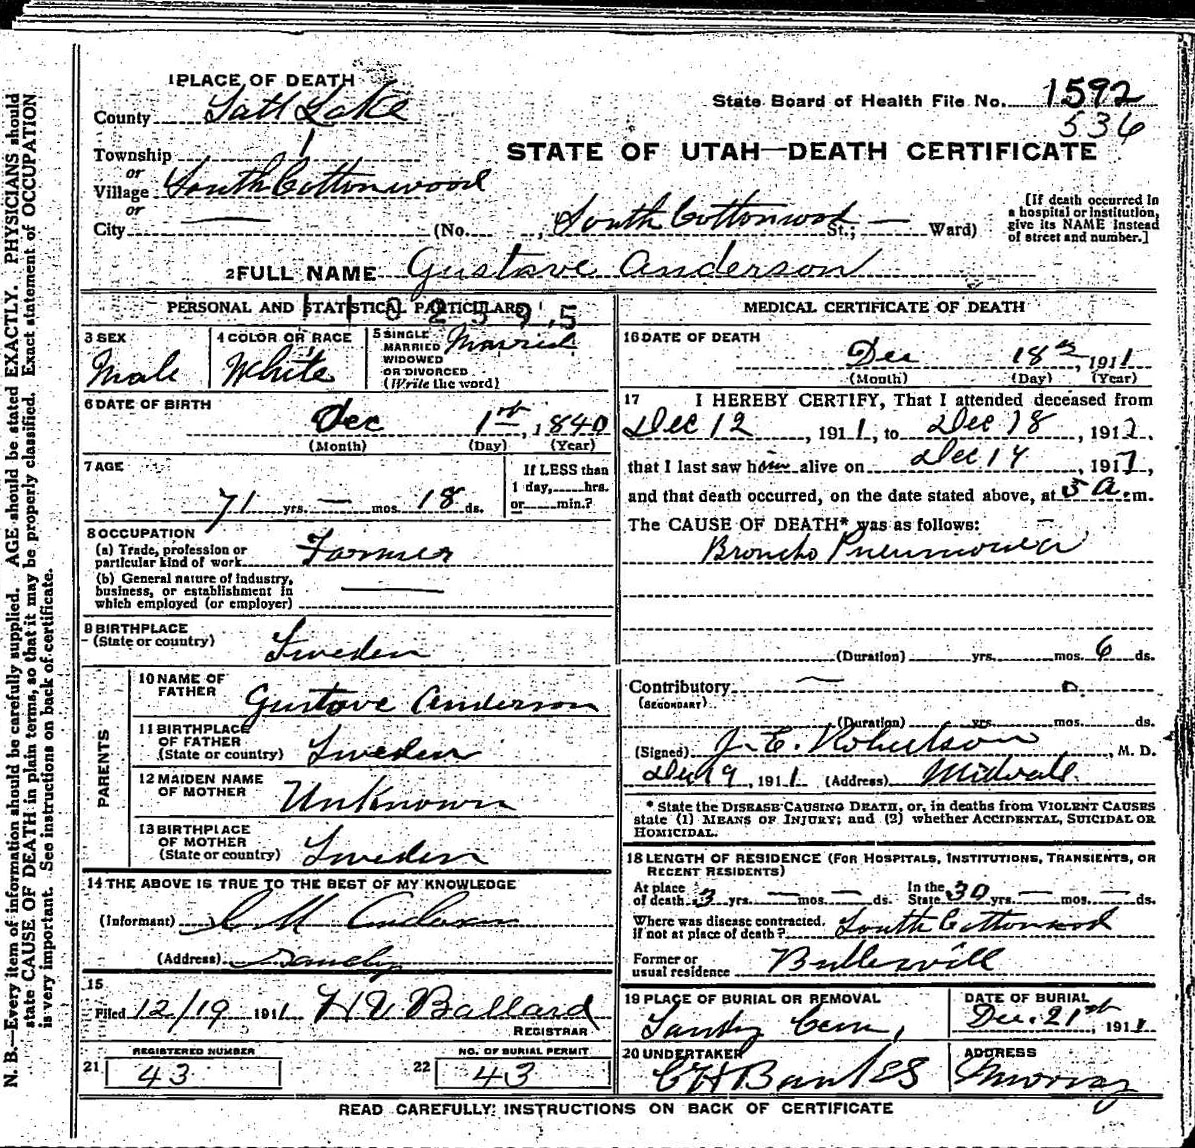 1 PLACE OF DEATH
County Salt Lake
State Board of Health File No. 1592
536
Township
or
Village South Cottonwood
or
City — (No. , South Cottonwood St.; — Ward)
STATE OF UTAH—DEATH CERTIFICATE
[If death occurred in
a hospital or institution,
give its NAME instead
of street and number.]
2 FULL NAME Gustave Anderson
PERSONAL AND STATISTICAL PARTICULARS
3 SEX
Male
4 COLOR OR RACE
White
5 SINGLE
MARRIED
WIDOWED
OR DIVORCED
(Write the word)
Married
6 DATE OF BIRTH
Dec 1st, 1840
(Month) (Day) (Year)
7 AGE
71 yrs. — mos. 18 ds.
If LESS than
1 day, hrs.
or min.?
8 OCCUPATION
(a) Trade, profession or
particular kind of work Farmer
(b) General nature of industry,
business, or establishment in
which employed (or employer) —
9 BIRTHPLACE
(State or country) Sweden
PARENTS
10 NAME OF
FATHER Gustave Anderson
11 BIRTHPLACE
OF FATHER
(State or country) Sweden
12 MAIDEN NAME
OF MOTHER Unknown
13 BIRTHPLACE
OF MOTHER
(State or country) Sweden
14 THE ABOVE IS TRUE TO THE BEST OF MY KNOWLEDGE
(Informant) Anderson
(Address) Sandy
15
Filed 12/19 1911 H V Ballard
REGISTRAR
REGISTERED NUMBER
21 43
NO. OF BURIAL PERMIT
22 43
MEDICAL CERTIFICATE OF DEATH
16 DATE OF DEATH
Dec 18th, 1911
(Month) (Day) (Year)
17 I HEREBY CERTIFY, That I attended deceased from
Dec 12, 1911, to Dec 18, 1911,
that I last saw him alive on Dec 17, 1911,
and that death occurred, on the date stated above, at 5 A. m.
The CAUSE OF DEATH* was as follows:
Broncho Pneumonia
(Duration) yrs. mos. 6 ds.
Contributory
(SECONDARY)
(Duration) yrs. mos. ds.
(Signed) J. E. Robertson, M. D.
Dec 19, 1911 (Address) Midvale
* State the DISEASE CAUSING DEATH, or, in deaths from VIOLENT CAUSES
state (1) MEANS OF INJURY; and (2) whether ACCIDENTAL, SUICIDAL OR
HOMICIDAL.
18 LENGTH OF RESIDENCE (FOR HOSPITALS, INSTITUTIONS, TRANSIENTS, OR
RECENT RESIDENTS)
At place
of death 3 yrs. — mos. — ds. In the
State 30 yrs. — mos. — ds.
Where was disease contracted,
if not at place of death? South Cottonwood
Former or
usual residence Butlerville
19 PLACE OF BURIAL OR REMOVAL
Sandy Cem,
DATE OF BURIAL
Dec. 21st, 1911
20 UNDERTAKER
ADDRESS
Murray
READ CAREFULLY INSTRUCTIONS ON BACK OF CERTIFICATE
N. B.—Every item of information should be carefully supplied. AGE should be stated EXACTLY. PHYSICIANS should
state CAUSE OF DEATH in plain terms, so that it may be properly classified. Exact statement of OCCUPATION
is very important. See instructions on back of certificate.